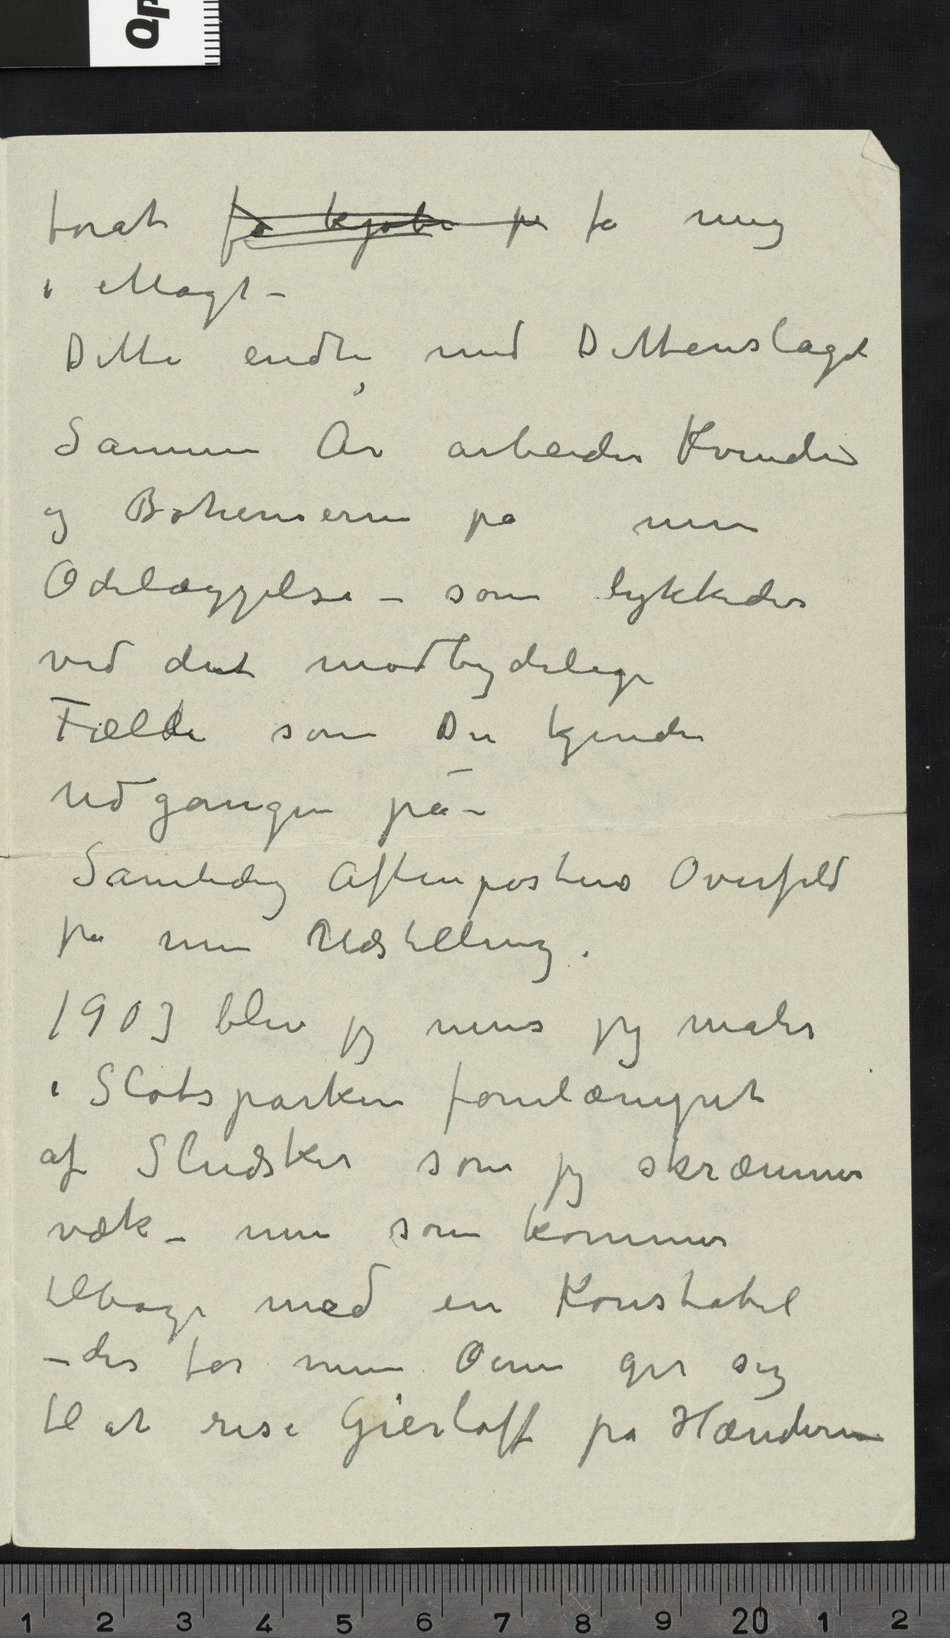 forat få kjøbe på få mig
i Magt –
Dette endte med Dittenslaget
Samme År arbeider Kvinden
og Bohemerne på min
Ødelæggelse – som lykkedes
ved det modbydelige
Fælde som Du kjender
Udgangen på –
Samtidig Aftenpostens Overfald
på min Udstilling.
1903 blev jeg mens jeg maler
i Slotsparken fornlæmpet
af Sludsker som jeg skræmmer
væk – men som kommer
tilbage med en Konstabel
– der for mine Øine gir sig
til at rise Gierløff på Hænderne
1 2 3 4 5 6 7 8 9 20 1 2